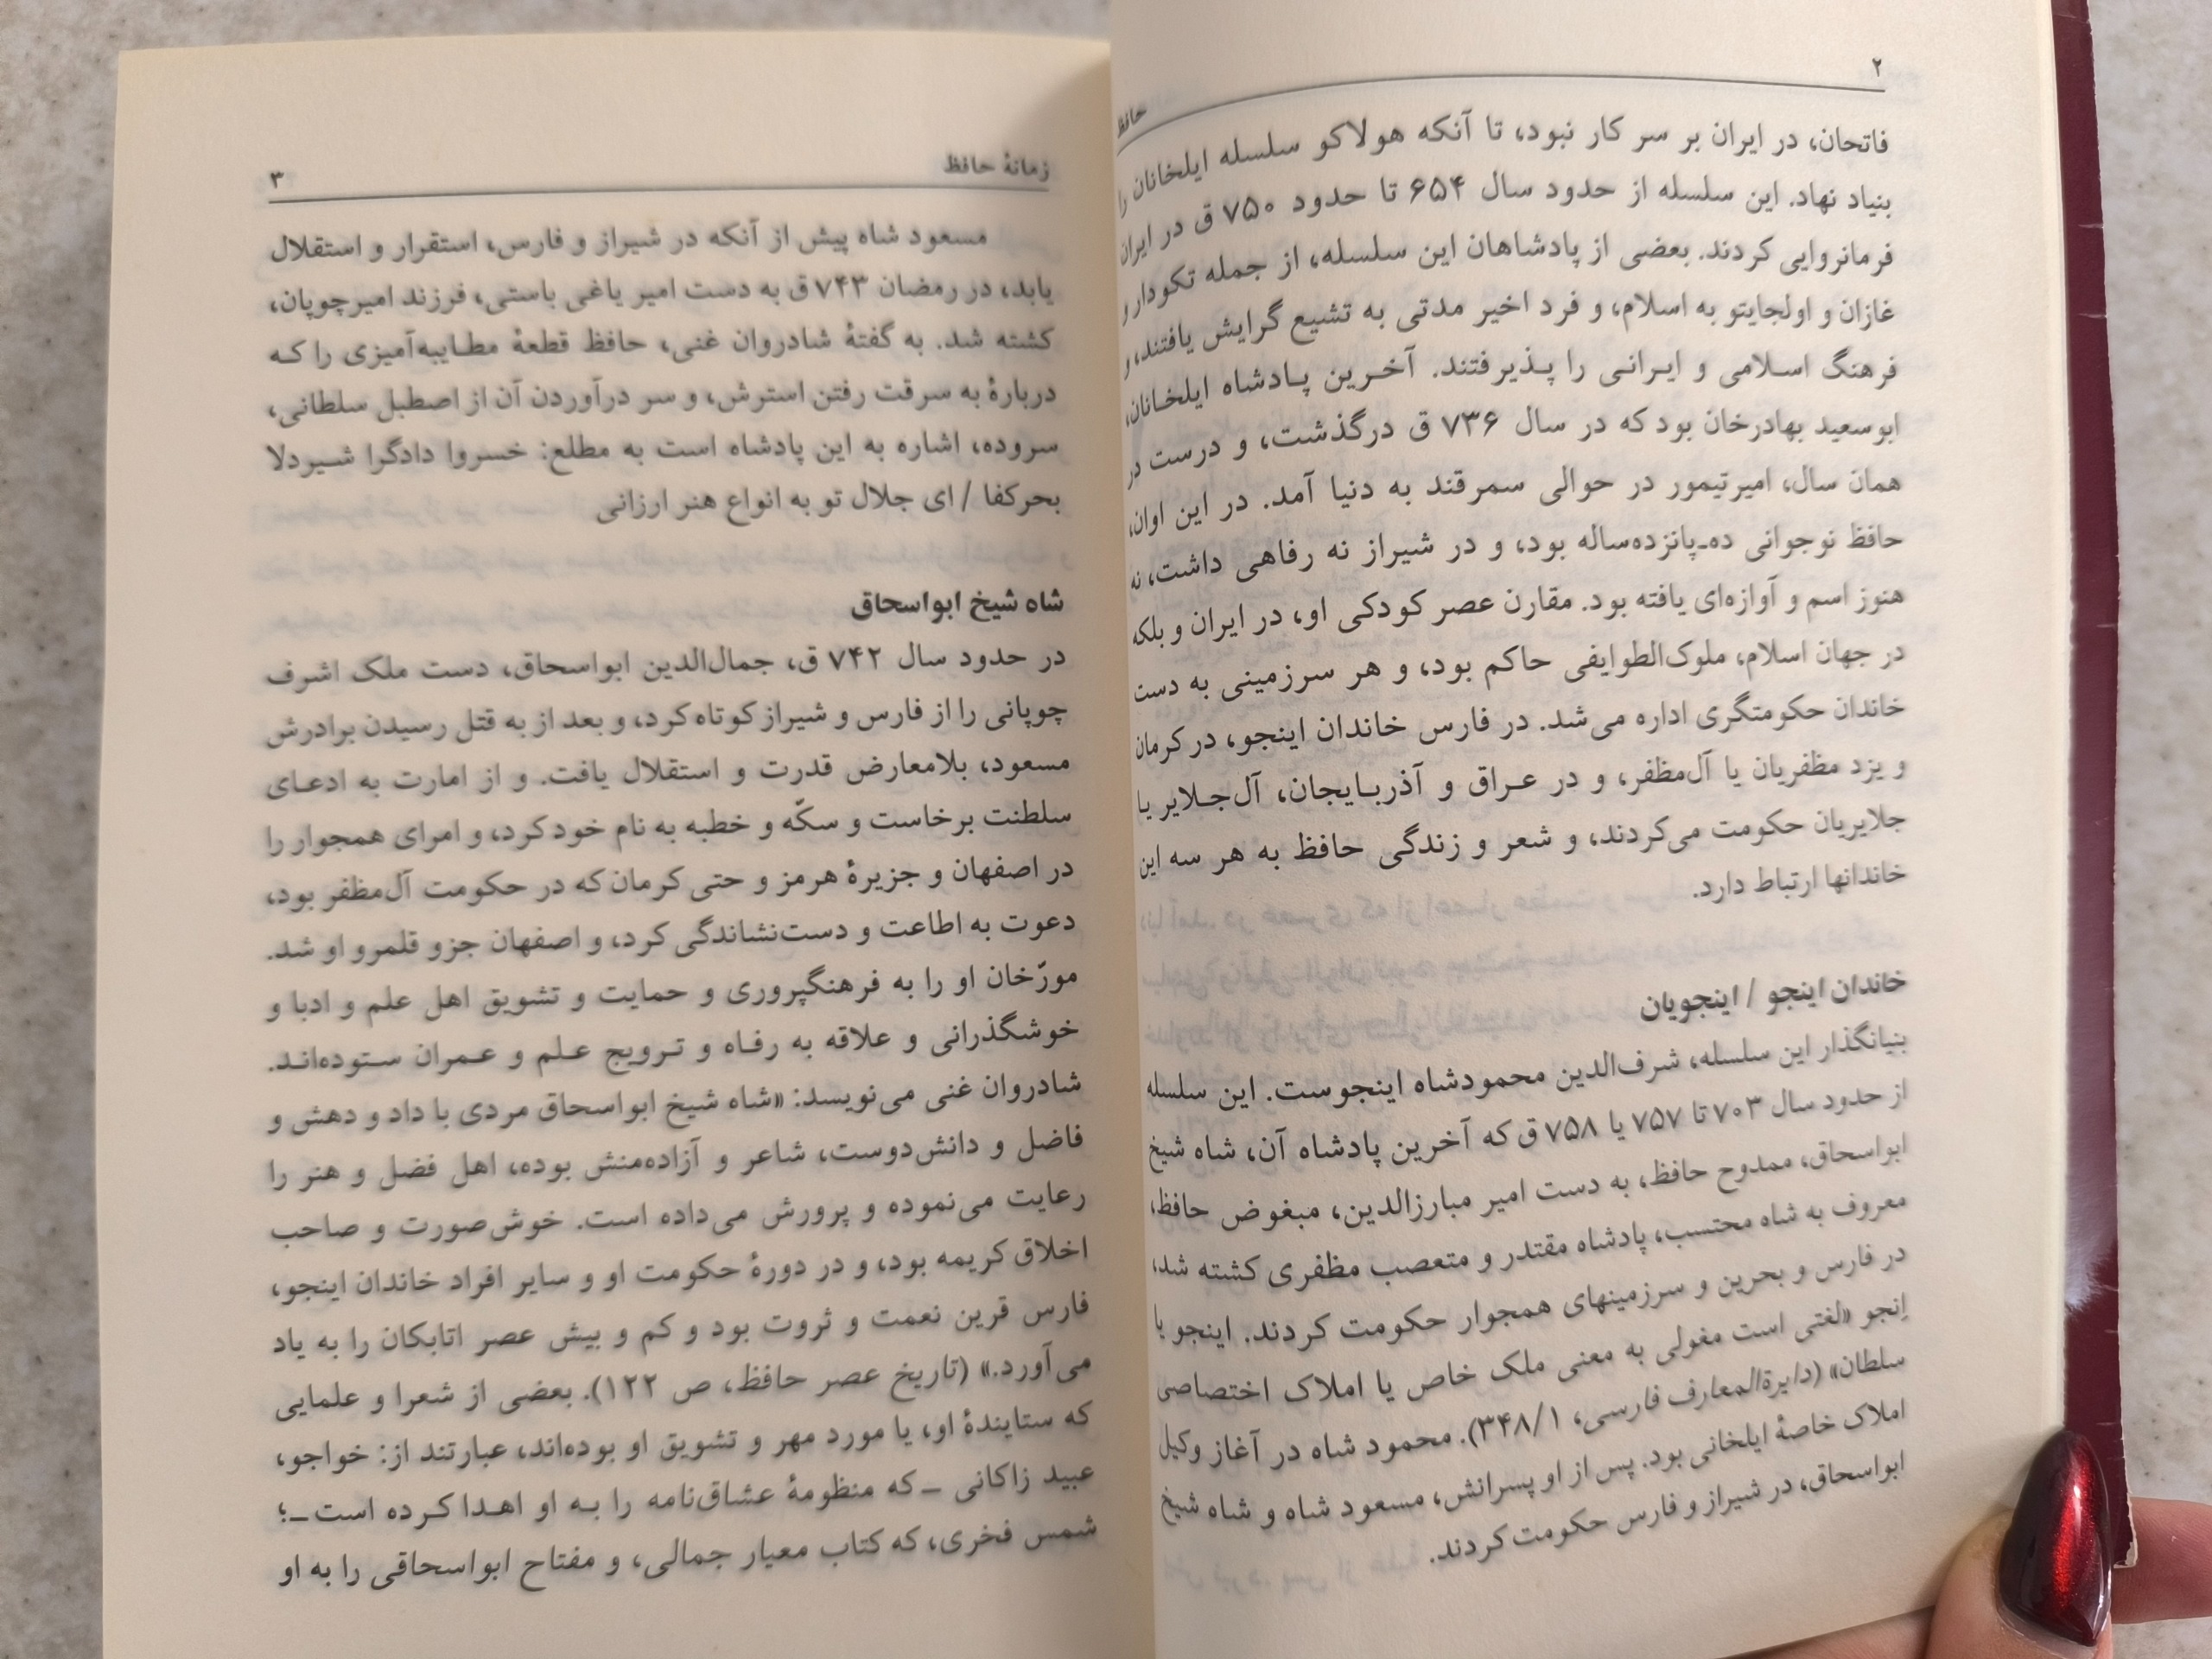 ۲
حافظ
فاتحان، در ایران بر سر کار نبود، تا آنکه هولاکو سلسله ایلخانان را
بنیاد نهاد. این سلسله از حدود سال ۶۵۴ تا حدود ۷۵۰ ق در ایران
فرمانروایی کردند. بعضی از پادشاهان این سلسله، از جمله تکودار و
غازان و اولجایتو به اسلام، و فرد اخیر مدتی به تشیع گرایش یافتند، و
فرهنگ اسلامی و ایرانی را پذیرفتند. آخرین پادشاه ایلخانان،
ابوسعید بهادرخان بود که در سال ۷۳۶ ق درگذشت، و درست در
همان سال، امیرتیمور در حوالی سمرقند به دنیا آمد. در این اوان،
حافظ نوجوانی ده‌ـ‌پانزده‌ساله بود، و در شیراز نه رفاهی داشت، نه
هنوز اسم و آوازه‌ای یافته بود. مقارن عصر کودکی او، در ایران و بلکه
در جهان اسلام، ملوک‌الطوایفی حاکم بود، و هر سرزمینی به دست
خاندان حکومتگری اداره می‌شد. در فارس خاندان اینجو، در کرمان
و یزد مظفریان یا آل‌مظفر، و در عراق و آذربایجان، آل‌جلایر یا
جلایریان حکومت می‌کردند، و شعر و زندگی حافظ به هر سه این
خاندانها ارتباط دارد.
خاندان اینجو / اینجویان
بنیانگذار این سلسله، شرف‌الدین محمودشاه اینجوست. این سلسله
از حدود سال ۷۰۳ تا ۷۵۷ یا ۷۵۸ ق که آخرین پادشاه آن، شاه شیخ
ابواسحاق، ممدوح حافظ، به دست امیر مبارزالدین، مبغوض حافظ،
معروف به شاه محتسب، پادشاه مقتدر و متعصب مظفری کشته شد،
در فارس و بحرین و سرزمینهای همجوار حکومت کردند. اینجو یا
اِنجو «لغتی است مغولی به معنی ملک خاص یا املاک اختصاصی
سلطان» (دایرةالمعارف فارسی، ۳۴۸/۱). محمود شاه در آغاز وکیل
املاک خاصهٔ ایلخانی بود. پس از او پسرانش، مسعود شاه و شاه شیخ
ابواسحاق، در شیراز و فارس حکومت کردند.
زمانهٔ حافظ
۳
مسعود شاه پیش از آنکه در شیراز و فارس، استقرار و استقلال
یابد، در رمضان ۷۴۳ ق به دست امیر یاغی باستی، فرزند امیرچوپان،
کشته شد. به گفتهٔ شادروان غنی، حافظ قطعهٔ مطایبه‌آمیزی را که
دربارهٔ به سرقت رفتن استرش، و سر درآوردن آن از اصطبل سلطانی،
سروده، اشاره به این پادشاه است به مطلع: خسروا دادگرا شیردلا
بحرکفا / ای جلال تو به انواع هنر ارزانی
شاه شیخ ابواسحاق
در حدود سال ۷۴۲ ق، جمال‌الدین ابواسحاق، دست ملک اشرف
چوپانی را از فارس و شیراز کوتاه کرد، و بعد از به قتل رسیدن برادرش
مسعود، بلامعارض قدرت و استقلال یافت. و از امارت به ادعای
سلطنت برخاست و سکّه و خطبه به نام خود کرد، و امرای همجوار را
در اصفهان و جزیرهٔ هرمز و حتی کرمان که در حکومت آل‌مظفر بود،
دعوت به اطاعت و دست‌نشاندگی کرد، و اصفهان جزو قلمرو او شد.
مورّخان او را به فرهنگپروری و حمایت و تشویق اهل علم و ادبا و
خوشگذرانی و علاقه به رفاه و ترویج علم و عمران ستوده‌اند.
شادروان غنی می‌نویسد: «شاه شیخ ابواسحاق مردی با داد و دهش و
فاضل و دانش‌دوست، شاعر و آزاده‌منش بوده، اهل فضل و هنر را
رعایت می‌نموده و پرورش می‌داده است. خوش‌صورت و صاحب
اخلاق کریمه بود، و در دورهٔ حکومت او و سایر افراد خاندان اینجو،
فارس قرین نعمت و ثروت بود و کم و بیش عصر اتابکان را به یاد
می‌آورد.» (تاریخ عصر حافظ، ص ۱۲۲). بعضی از شعرا و علمایی
که ستایندهٔ او، یا مورد مهر و تشویق او بوده‌اند، عبارتند از: خواجو،
عبید زاکانی ــ که منظومهٔ عشاق‌نامه را به او اهدا کرده است ــ؛
شمس فخری، که کتاب معیار جمالی، و مفتاح ابواسحاقی را به او